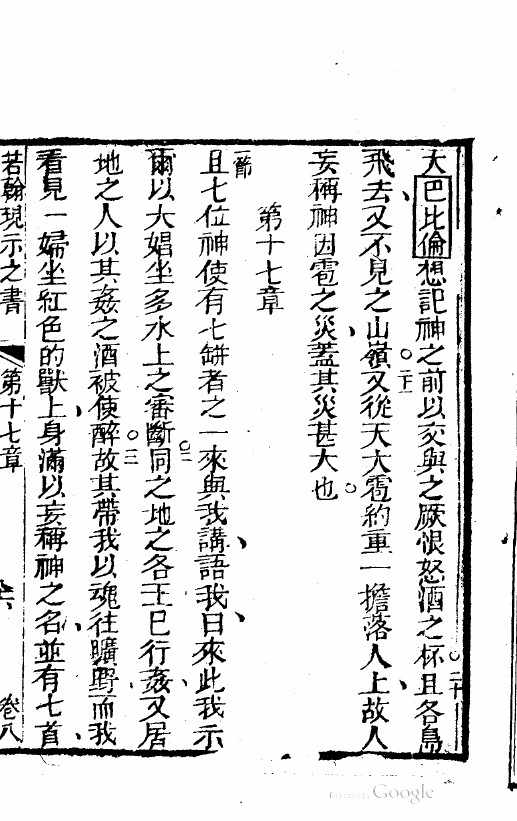 大巴比倫想記神之前以交與之厥恨怒酒之杯且各島
飛去又不見之山嶺又從天大雹約重一擔落人上故人
妄稱神因雹之災蓋其災甚大也
第十七章
一節
且七位神使有七缾者之一來與我講語我曰來此我示
爾以大娼坐多水上之審斷同之地之各王已行姦又居
地之人以其姦之酒被使醉故其帶我以魂往曠野而我
看見一婦坐紅色的獸上身滿以妄稱神之名並有七首
若翰現示之書 第十七章 卷八
二十
二十一
二
三
Google